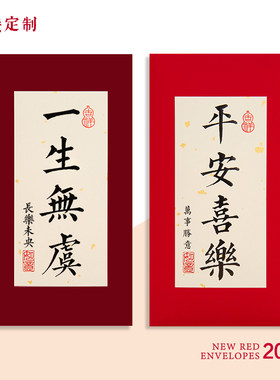 定制
一生無虞
長樂未央
平安喜樂
萬事勝意
NEW RED
ENVELOPES 20